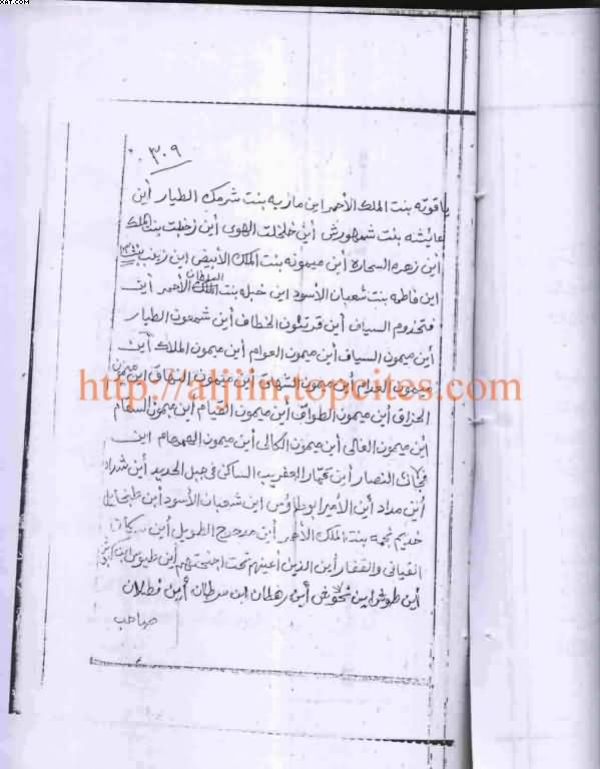 ٣٠٩
ياقوته بنت الملك الأحمر اين مازيه بنت شرمك الطيار أين
عائشه بنت شمهورش أين خلخلت الهوى أين زخلت بنت الملك
أين زهره السحاره أين ميمونه بنت الملك الأبيض اين زينب بنت
اين فاطمه بنت شعبان الأسود اين خبله بنت الملك الأحمر أين
السلطان
فتخدوم السياف أين قرنثون الخطاف أين شمعون الطيار
أين ميمون السياف أين ميمون العوام أين ميمون الملاك أين
ميمون الغدام أين ميمون الشهاق اين ميمون
http://aljiin.topcites.com
الخزاق أين ميمون الطواف اين ميمون القيام اين ميمون السهام
اين ميمون العالى أين ميمون الكالى أين ميمون الهمهام اين
النصار أين العفريت الساكن في جبل الحديد أين شداد
أين مداد أين الأمير ابو طاوس اين شعبان الأسود أين
نجمه بنت الملك الأحمر أين مدحرج الطويل أين سكان
الفيافى والقفار أين الذين أعينهم تحت اجنحتهم أين طيوس اين
أين طوش اين أين رهطان اين سرطان أين قطلان
صاحب
XAT.COM